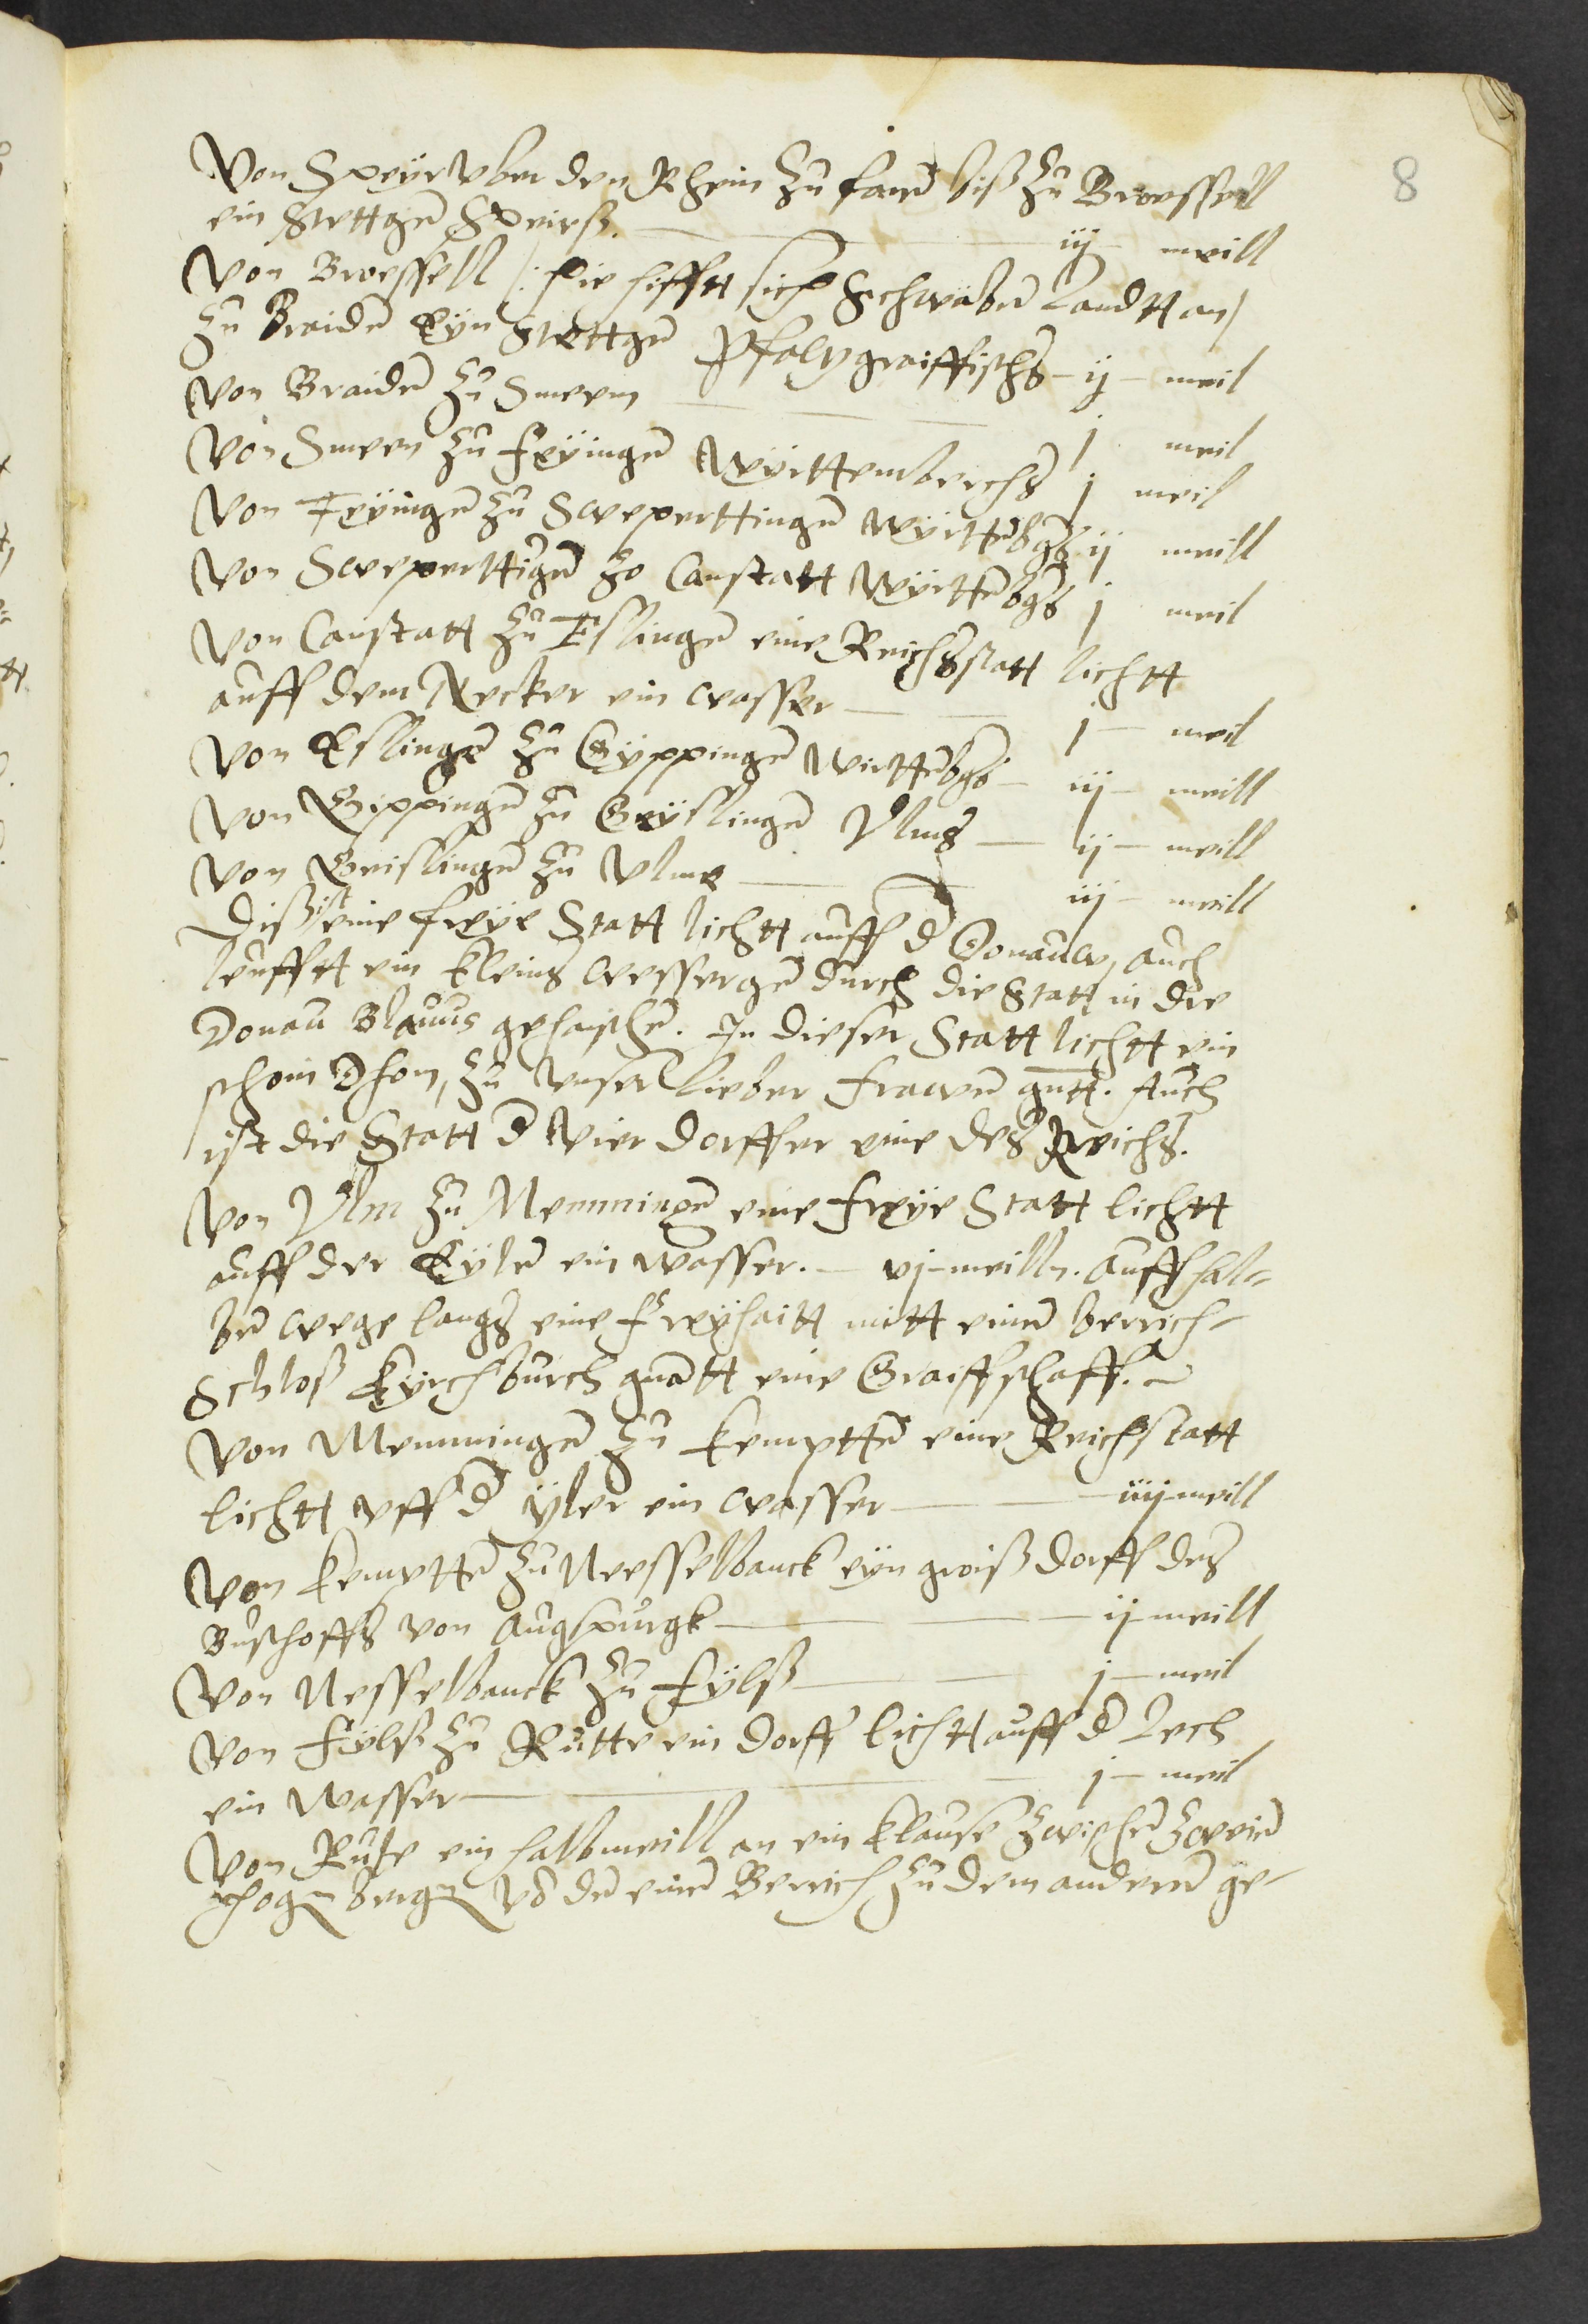 8
Von Speÿr vber den Rhein zu faren biß zu Broessell
ein Stettgen Speirß. — iij — meill
Von Broessell /: hie hifftt sich Schwaben landtt an /
zu Braiden eÿn Stettgen Pfaltzgraiffischs — ij — meil
Von Braiden zu Smeen — j meil
Von Smeen zu feÿingen Wÿrttemberchs j meil
Von Feÿingen zu Sweperttingen Wÿrttebgs ij meill
Von Sweperttigen zo Canstatt Wÿrttebgs j meil
Von Canstatt zu Eslingen eine Reichsstatt lichtt
auff dem Necker ein wasser — j — meil
Von Eslingen zu Gÿppingen Wirttebgs — iij — meill
Von Gippingen zu Geÿslingen Vlms — ij — meill
Von Geislingen zu Vlme — iij — meill
Diß ist eine freÿe Statt lichtt auff d Donauw, auch
leufftt ein kleins wessergen durch die Statt in die
Donau Blauus gehaischen. In dieser Statt lichtt ein
schoin Dhom, zu vnser lieber frawen gntt. Auch
ist die Statt d vier dorffer eine des Reichs.
Von Vlm zu Memmingen eine freÿe Statt lichtt
auff der Eÿlen ein wasser. — vj — meilln. Auff hal-
ben wege langs eine freÿhaitt mitt einen berrich-
Schloß Kÿrchburch gnantt eine Graiffschafft.
Von Memmingen zu Kemptten eine Reichstatt
lichtt vff d ÿler ein wasser — iiij meill
Von Kemptten zu Neesselbanck eÿn groiß dorff des
Buschoffs von Augspurgk — ij — meill
Von Nesselbanck zu Fÿlß — j — meil
Von Fÿlß zu Rutte ein dorff lichtt auff d Lech
ein wasser — j — meil
Von Rute ein halb meill an ein klause zwischen zweien
hogen bergen vo den einen Berrich zu dem anderen ge-